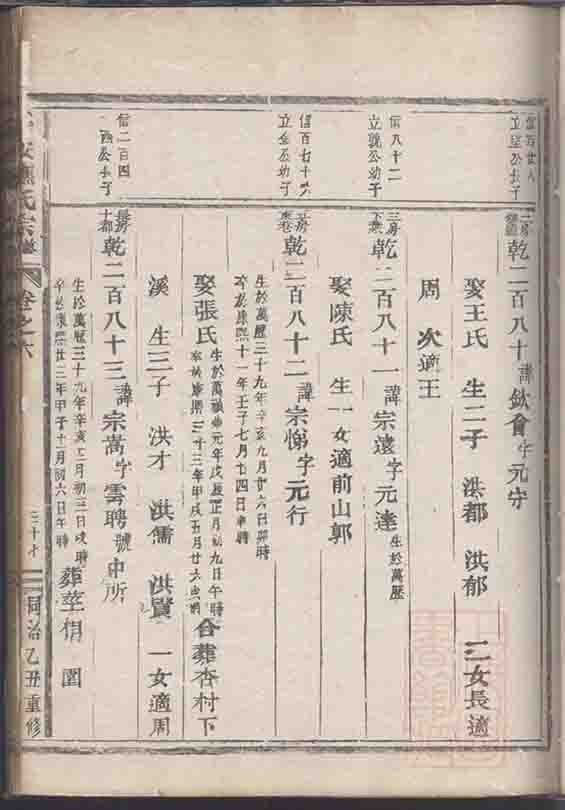 立 公長子
二房
乾二百八十諱欽 字元守
娶王氏 生二子 洪都 洪郁 二女長適
周 次適王
信八十二
立 公幼子
三房
乾二百八十一諱宗遠字元達生於萬歷
娶陳氏 生一女適前山郭
信百七十
立 公幼子
乾二百八十二諱宗悌字元行
生於萬歷三十九年辛亥九月廿六日卯時
卒於康熙十一年壬子七月十四日申時
娶張氏
生於萬 元年 正月初九日午時
卒於康熙三十三年甲戌五月廿六
合葬杏村下
溪 生三子 洪才 洪儒 洪賢 一女適周
信二百四
公長子
長房
十都
乾二百八十三諱宗嵩字雲聘號中所
生於萬歷三十九年辛亥 月初三日戌時
卒於康熙廿三年甲子十一月初六日午時
葬
氏宗譜 卷之六 三十 同治乙丑重修